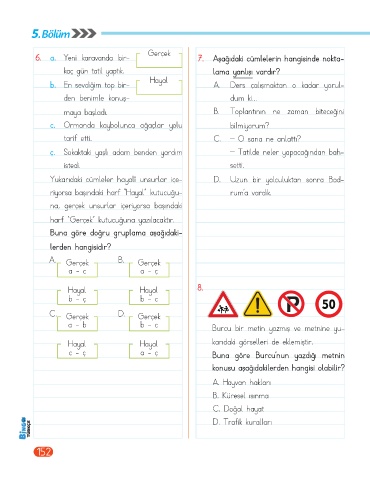 5.Bölüm
6. a. Yeni karavanda bir-
kaç gün tatil yaptık.
b. En sevdiğim top bir-
den benimle konuş-
maya başladı.
c. Ormanda kaybolunca ağaçlar yolu
tarif etti.
ç. Sokaktaki yaşlı adam benden yardım
istedi.
Gerçek
Hayal
Yukarıdaki cümleler hayalî unsurlar içe-
riyorsa başındaki harf "Hayal" kutucuğu-
na, gerçek unsurlar içeriyorsa başındaki
harf "Gerçek" kutucuğuna yazılacaktır.
Buna göre doğru gruplama aşağıdaki-
lerden hangisidir?
A. Gerçek
a - c
Hayal
b - ç
B. Gerçek
a - ç
Hayal
b - c
C. Gerçek
a - b
Hayal
c - ç
D. Gerçek
b - c
Hayal
a - ç
7. Aşağıdaki cümlelerin hangisinde nokta-
lama yanlışı vardır?
A. Ders çalışmaktan o kadar yorul-
dum ki...
B. Toplantının ne zaman biteceğini
bilmiyorum?
C. – O sana ne anlattı?
– Tatilde neler yapacağından bah-
setti.
D. Uzun bir yolculuktan sonra Bod-
rum'a vardık.
8.
P
50
Burcu bir metin yazmış ve metnine yu-
karıdaki görselleri de eklemiştir.
Buna göre Burcu'nun yazdığı metnin
konusu aşağıdakilerden hangisi olabilir?
A. Hayvan hakları
B. Küresel ısınma
C. Doğal hayat
D. Trafik kuralları
BİNGO
TÜRKÇE
152